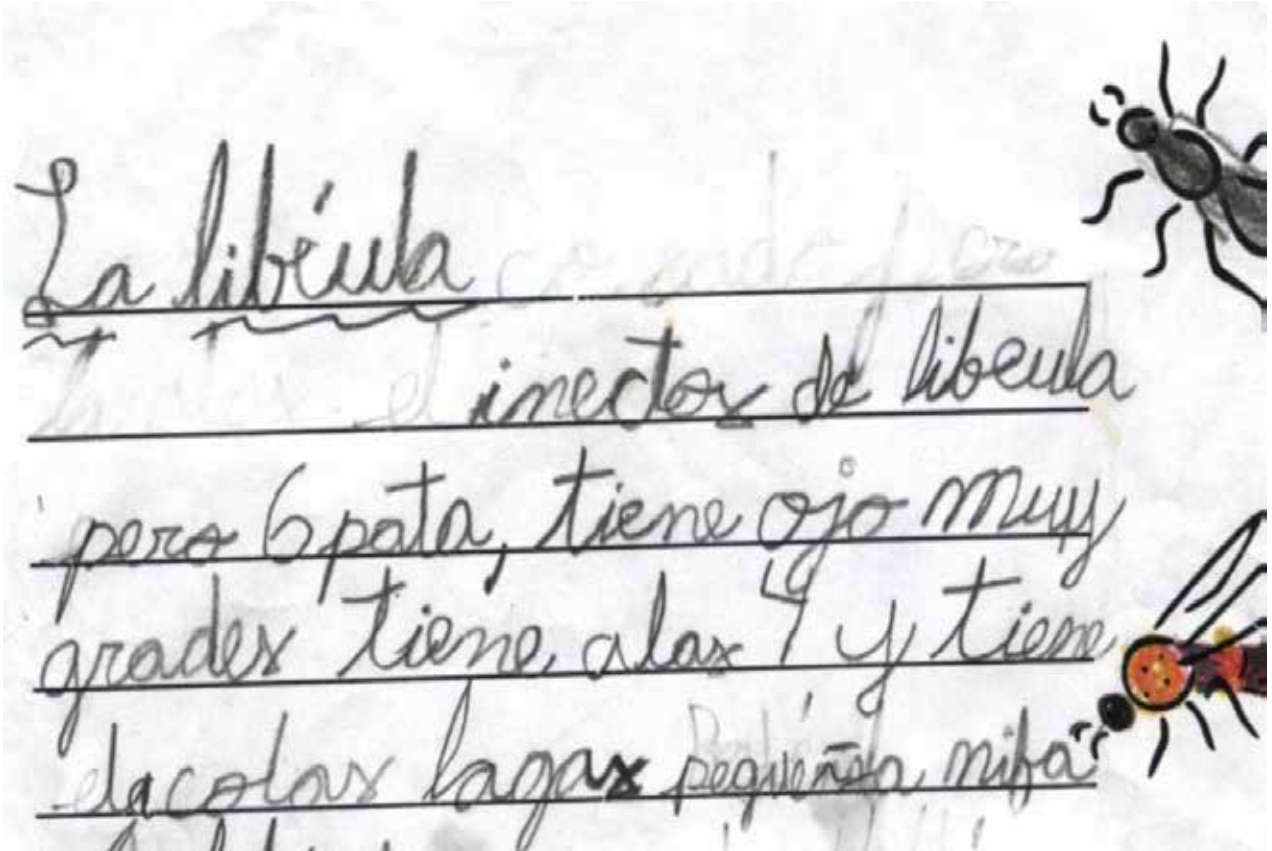 La libéula
inectos de libeula
pero 6 pata, tiene ojo muy
grades tiene alas 4 y tiene
lacolas lagas pequeñsa nifa